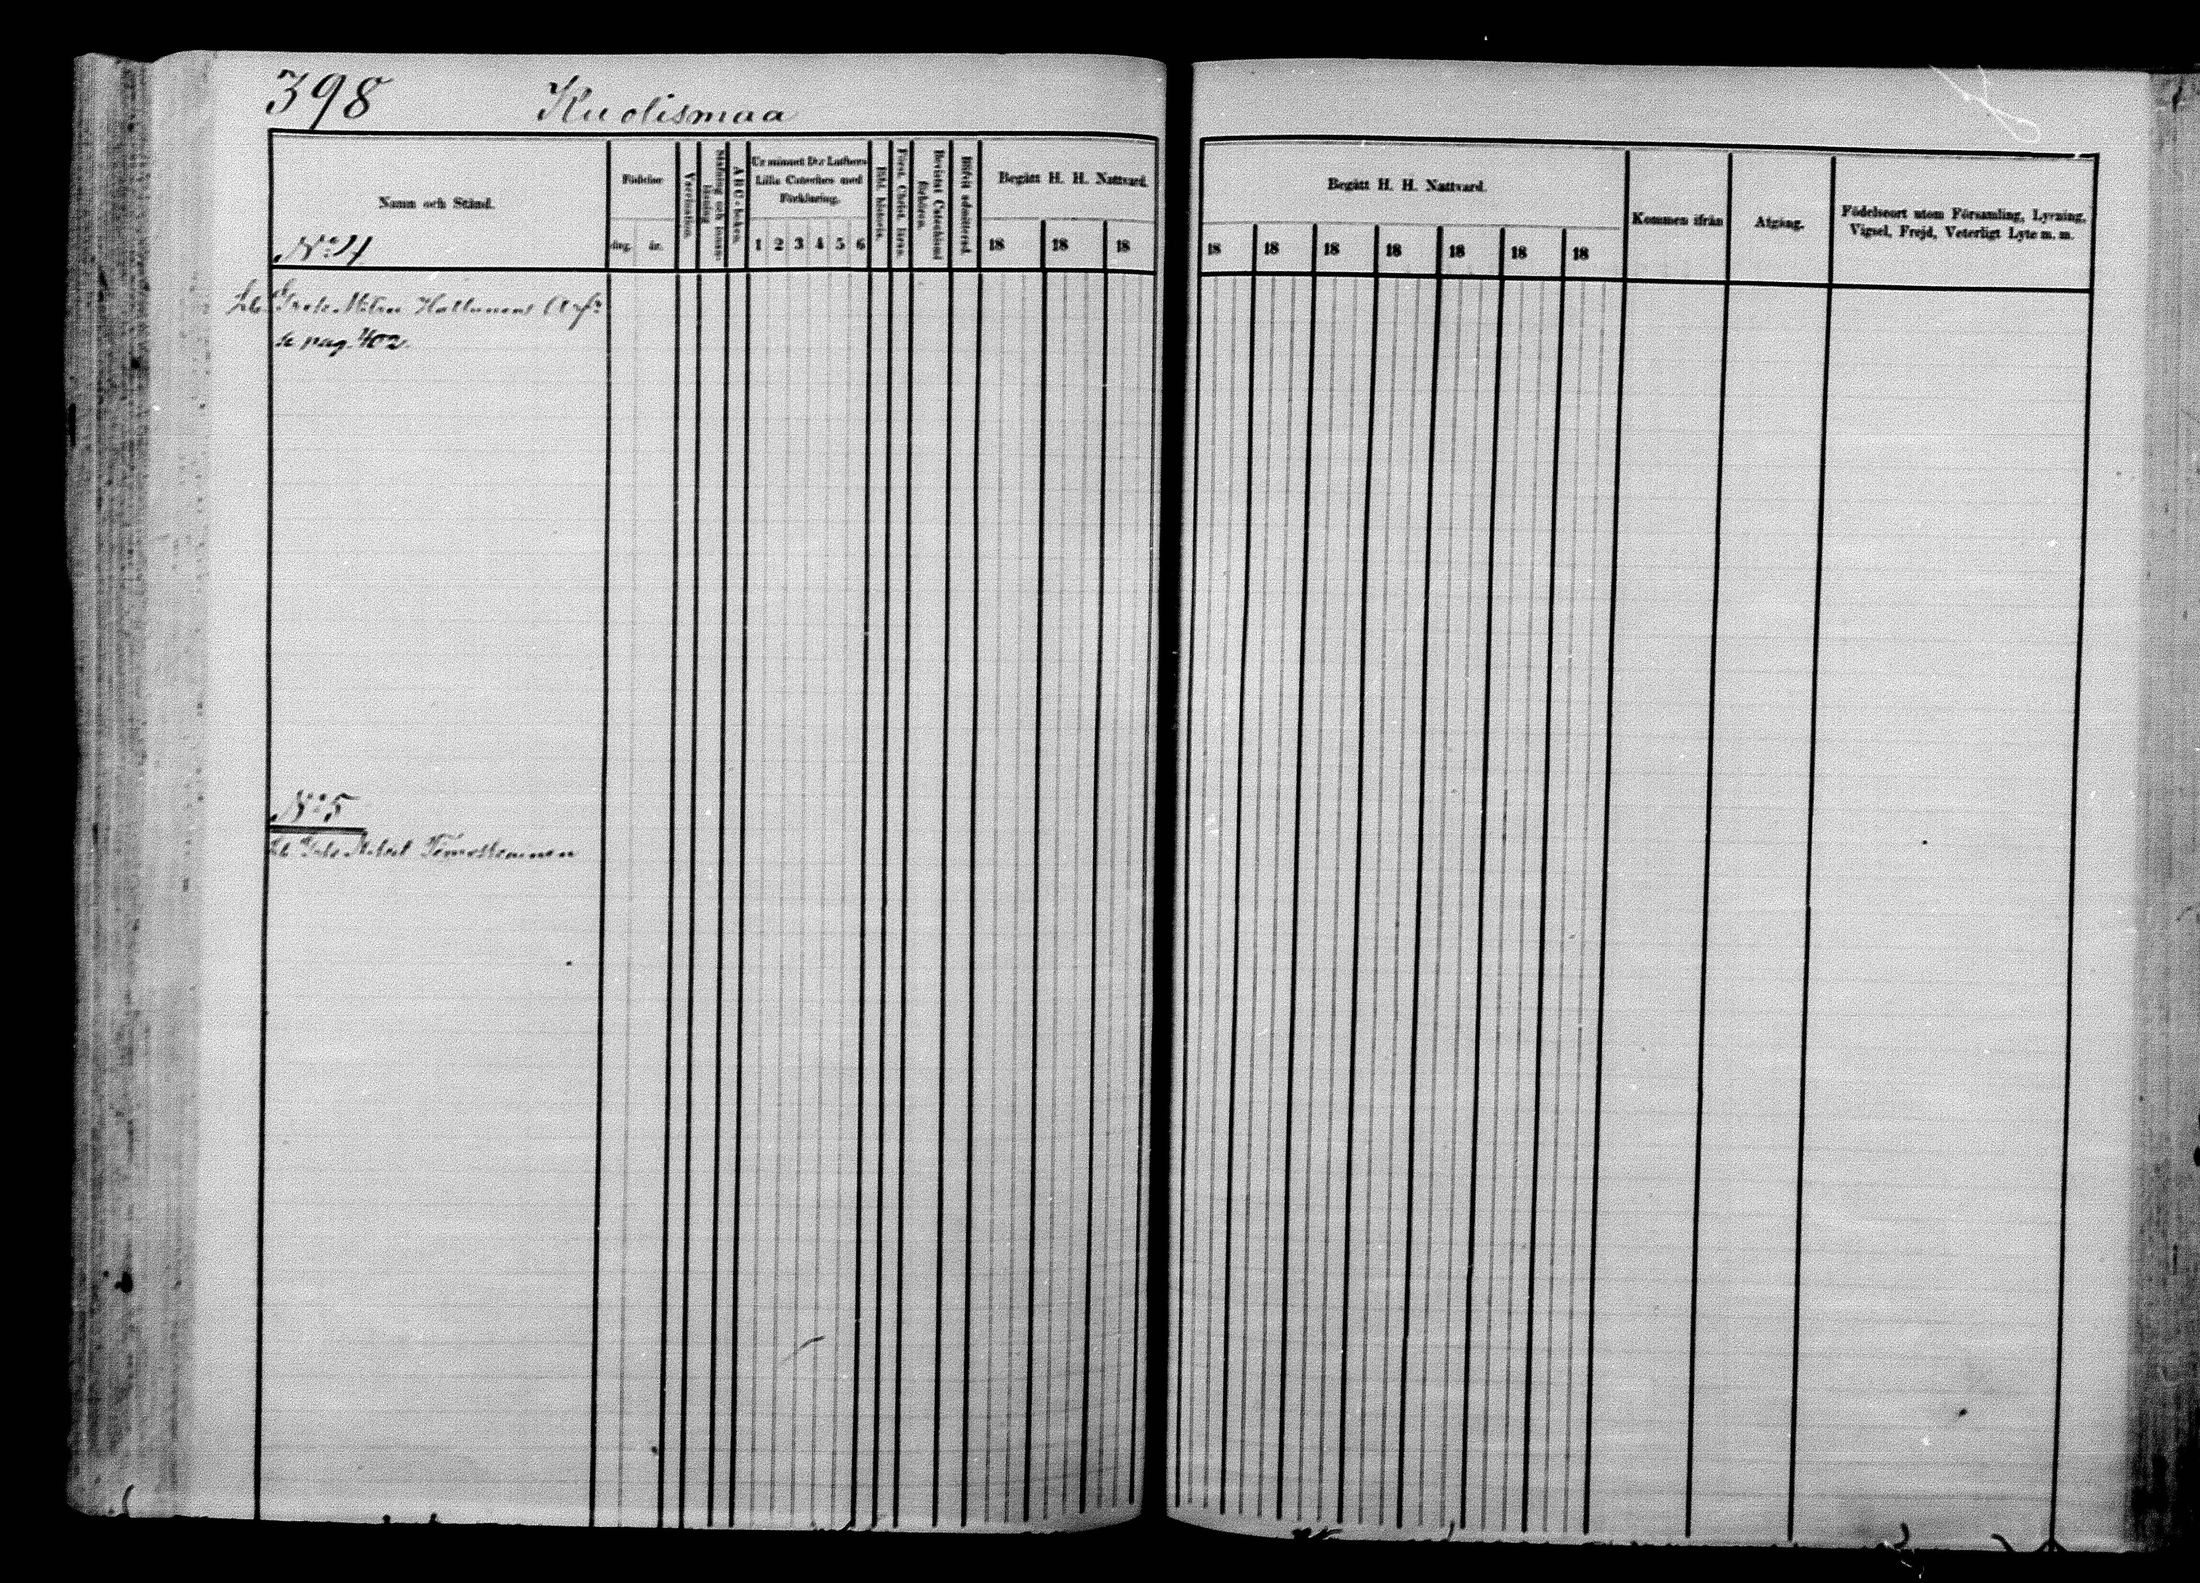 398 Kuolismaa
Namn och Stånd.
Födelse
dag. år.
Vaccination.
Stafning och innanläsning.
A B C-boken.
Ur minnet D:r Luthers
Lilla Cateches med
Förklaring.
1 2 3 4 5 6
Bibl. historia.
Först. Christ. läran.
Bevistat Catechismi förhören.
Blifvit admitterad.
Begått H. H. Nattvard.
18 18 18
Begått H. H. Nattvard.
18 18 18 18 18 18 18
Kommen ifrån
Afgång.
Födelseort utom Församling, Lysning,
Vigsel, Frejd, Veterligt Lyte m. m.
No 4
se pag. 402.
No 5